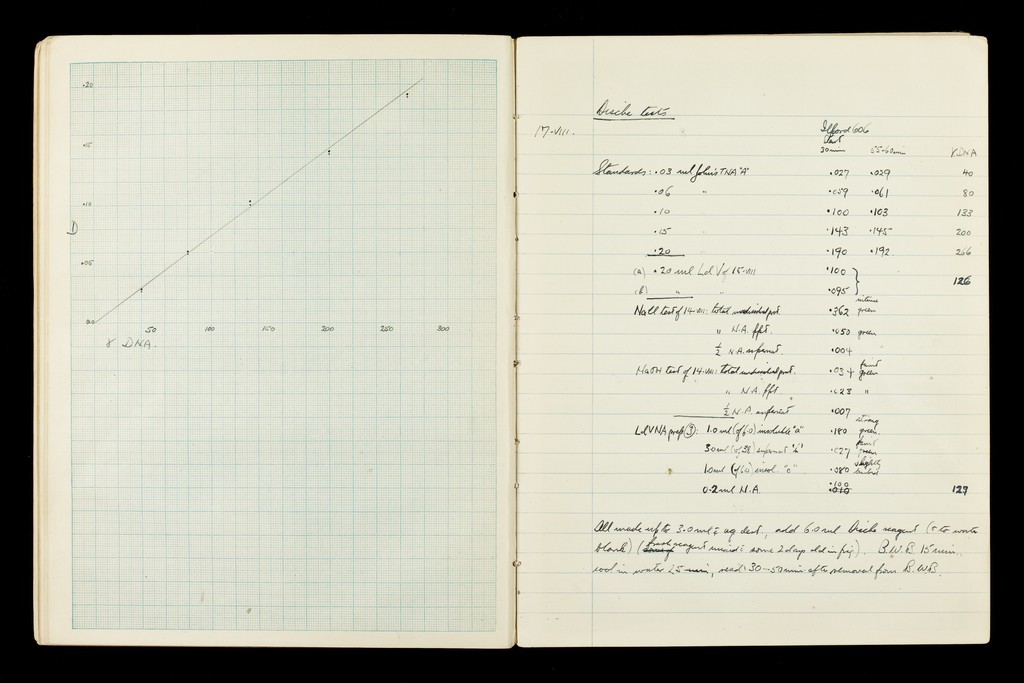 .20
.15
.10
D
.05
0.0
50 100 150 200 250 300
γ DNA.
Dische tests
17-VIII.
Ilford 606
30min 55-60min γ DNA
Standards: .03 ml John's TNA "A" .027 .029 40
.06 " .059 .061 80
.10 .100 .103 133
.15 .143 .145 200
.20 .190 .192 266
(a) .20 ml LdV of 15-VIII .100
126
(b) " " .095
intense
NaCl test of 14-VIII: total undissolved ppt. .362 green
" N.A. ppt. .050 green
½ N.A. supernat. .004
faint
NaOH test of 14-VIII: total undissolved ppt. .034 green
" N.A. ppt .023 "
½ N.A. supernat .007
strong
LdVNA prep ③: 1.0 ml (of 6.0) insoluble "a" .180 green.
faint
30ml (of 38) supernat "b" .027 green
slightly
1.0ml (of 6.0) insol. "c" .080 turbid
.100
0.2 ml N.A. .010 129
All made up to 3.0 ml c̄ aq dest, add 6.0 ml Dische reagent (& to water
blank) (fresh reagent mixed c̄ some 2 days old in fig). B.W.B 15 min.
cool in water 25 min, read 30-50 min after removal from B.W.B.